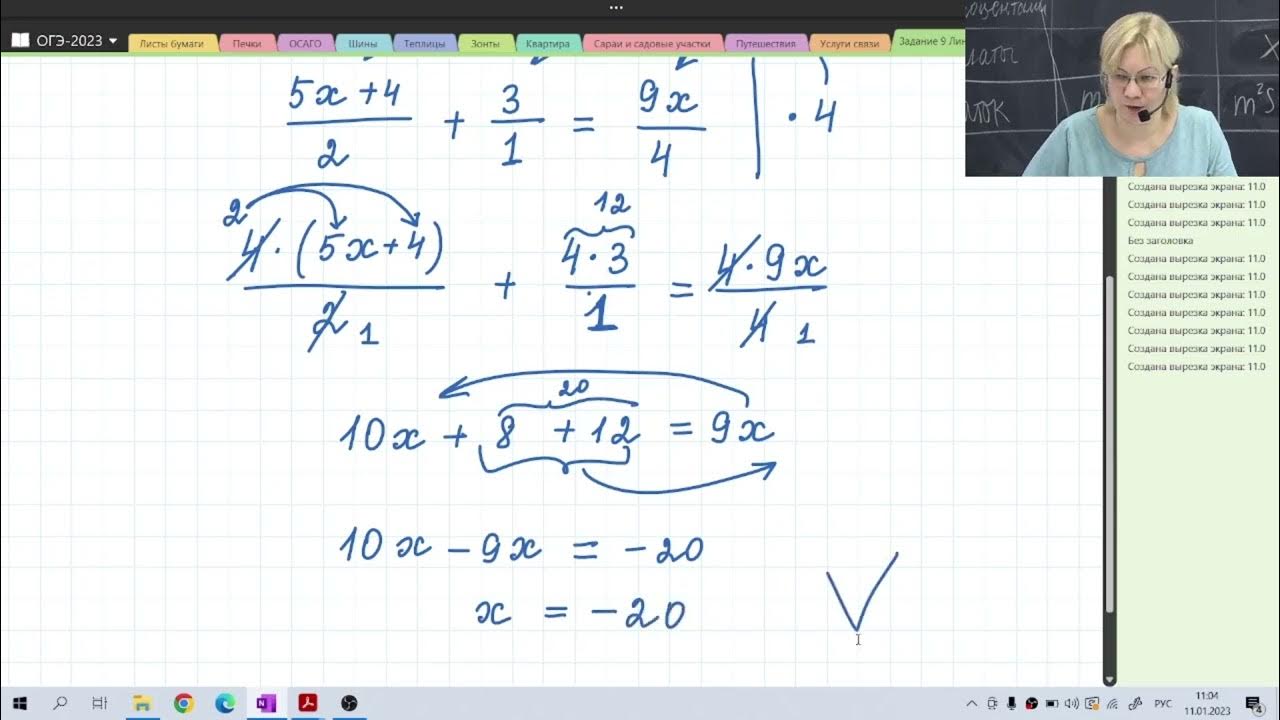 ...
ОГЭ-2023
Листы бумаги Печки ОСАГО Шины Теплицы Зонты Квартира Сараи и садовые участки Путешествия Услуги связи Задание 9 Лин
(5x + 4)/2 + 3/1 = 9x/4 | · 4
2 12
4 · (5x + 4)/2 1 + 4 · 3/1 = 4 · 9x/4 1
20
10x + 8 + 12 = 9x
10x − 9x = −20
x = −20
m²S
Создана вырезка экрана: 11.0
Создана вырезка экрана: 11.0
Создана вырезка экрана: 11.0
Без заголовка
Создана вырезка экрана: 11.0
Создана вырезка экрана: 11.0
Создана вырезка экрана: 11.0
Создана вырезка экрана: 11.0
Создана вырезка экрана: 11.0
Создана вырезка экрана: 11.0
Создана вырезка экрана: 11.0
РУС
11:04
11.01.2023
4